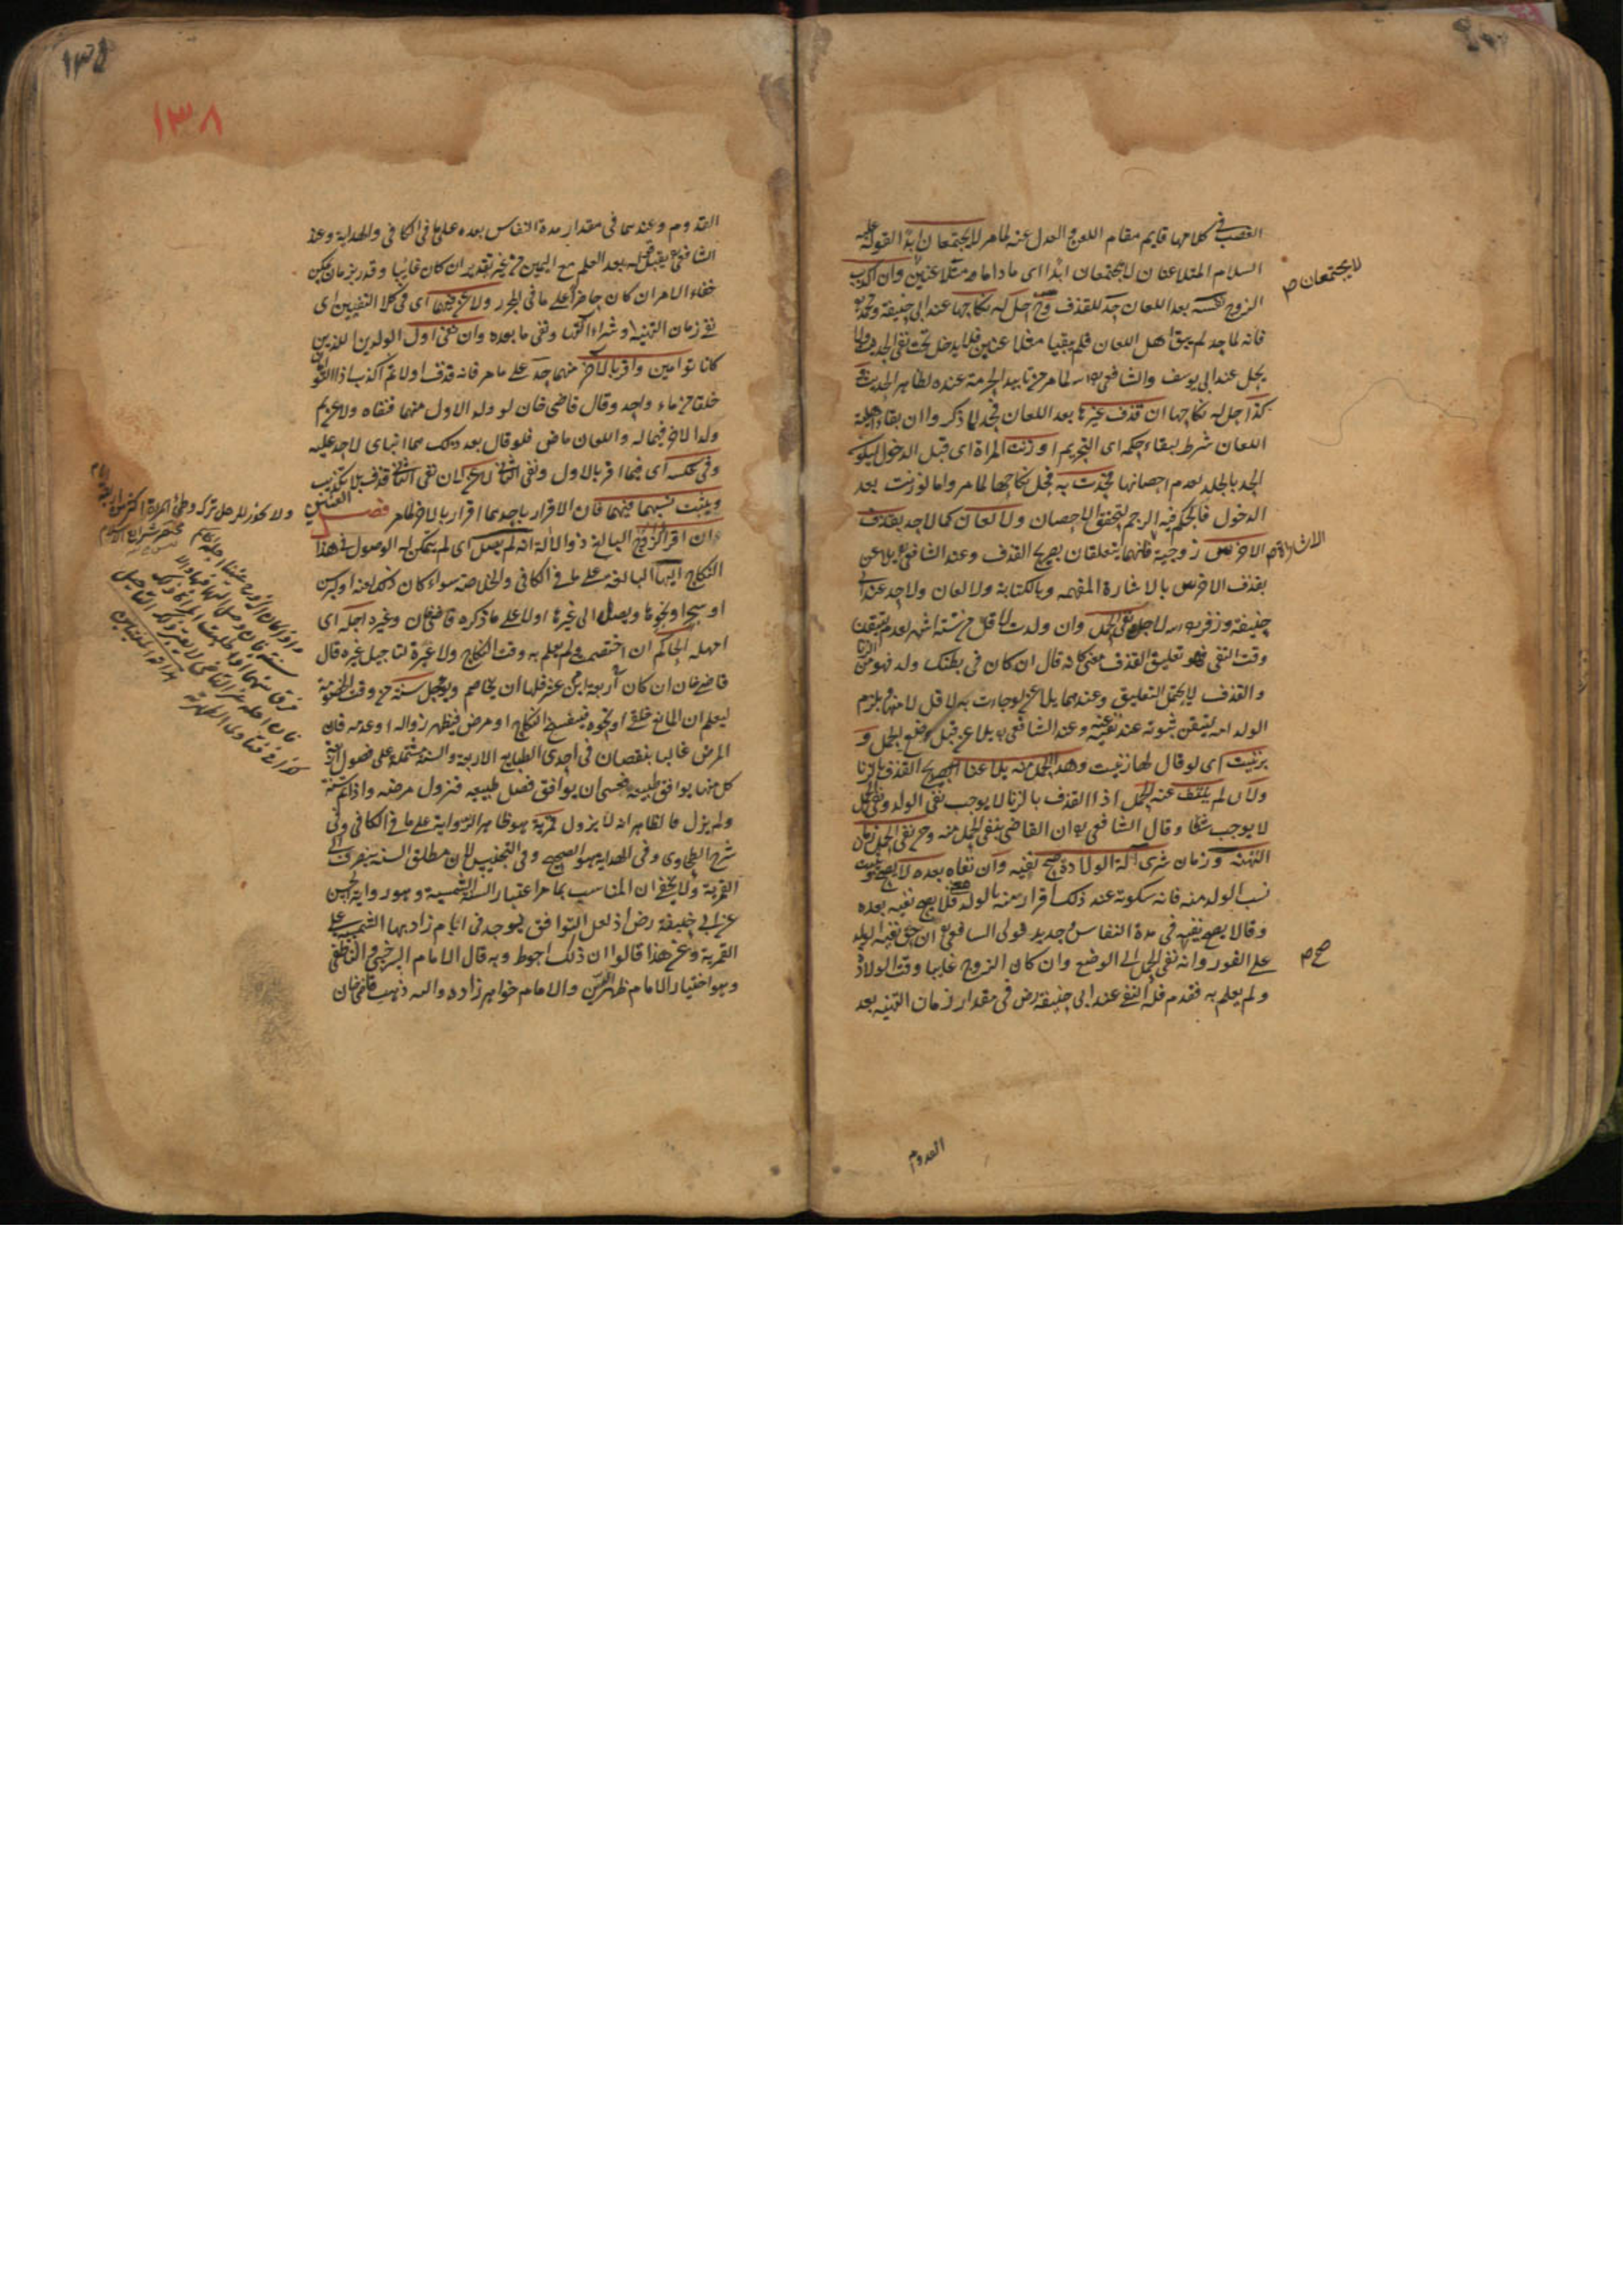 الغضب في كلامها قايم مقام اللعن والعدل عنه لما مر لا يجتمعان ابدا لقوله عليه
السلام المتلاعنان لا يجتمعان ابدا اى ماداما متلاعنين وان اكذب
لا يجتمعان
الزوج نفسه بعد اللعان حد للقذف وح حل له نكاحها عند ابى حنيفة ومحمد
فانه لما حد لم يبق اهل اللعان فلم يبقيا متلاعنين فلا يدخل تحت نفى الحديث ولا
يحل عند ابى يوسف والشافعى لما مر من تابيد الحرمة عنده لظاهر الحديث
كذا حل له نكاحها ان قذف غيرها بعد اللعان فحد لما ذكر وان بقاء اهلية
اللعان شرط لبقاء حكمه اى التحريم او زنت المراة اى قبل الدخول ليكون
الحد بالجلد لعدم احصانها فحدت به فحل نكاحها لما مر واما لو زنت بعد
الدخول فالحكم فيه الرجم لتحقق الاحصان ولا لعان كما لا حد بقذف
الاخرس زوجته فانهما يتعلقان بصريح القذف وعند الشافعى يلاعن
بقذف الاخرس بالاشارة المفهمه وبالكتابة ولا لعان ولا حد عند ابى
حنيفة وزفر لاجل نفى الحمل وان ولدت لاقل من ستة اشهر لعدم تيقن
وقت النفى فهو تعليق القذف معنى كانه قال ان كان فى بطنك ولد فهو من الزنا
والقذف لا يحتمل التعليق وعندهما يلاعن لو جاءت به لاقل لا منها ويلزم
الولد امه ليتيقن ثبوته عند نفيه وعند الشافعى يلاعن قبل وضع الحمل و
بزنيت اى لو قال لها زنيت وهذا الحمل منه يلاعنا لصريح القذف بالزنا
ولكن لم ينتف عنه الحمل اذا القذف بالزنا لا يوجب نفى الولد ونفى الحمل
لا يوجب شيئا وقال الشافعى ان القاضى ينفى الحمل منه ومن نفى الحمل زمان
التهنئة وزمان شرى آلة الولادة صح نفيه وان نفاه بعده لا يصح
نسب الولد منه فانه سكوته عند ذلك اقرار منه بالولد فلا يصح نفيه بعده
وقالا يصح نفيه فى مدة النفاس وجديد قولى الشافعى ان حق نفيه الولد
على الفور وانه نفى الحمل الى الوضع وان كان الزوج غايبا وقت الولادة
صح
ولم يعلم به فقدم فله النفى عند ابى حنيفة رض فى مقدار زمان التهنئه بعد
القدوم
١٣٨
القدوم وعندهما فى مقدار مدة النفاس بعده على ما فى الكافى والهداية وعند
الشافعى يقبل قوله بعد العلم مع اليمين من غير تقدير ان كان غايبا وقدر بزمان يمكن
خفاء الامر ان كان حاضرا على ما فى المحرر ولاعن فيهما اى فى كلا النفيين اى
نفى زمان التهنئه وشراء آلتها ونفى ما بعده وان نفى اول الولدين اللذين
كانا توامين واقر بالآخر منهما حد على ما مر فانه قذف اولا ثم اكذب اذا التوامان
خلقا من ماء واحد وقال قاضى خان لو ولد الاول منهما فنفاه ولاعن ثم
ولد الآخر فهما له واللعان ماض فلو قال بعد ذلك هما ابناى لا حد عليه
وفى عكسه اى فيما اقر بالاول ونفى الثانى لاعن لان نفى الثانى قذف بلا تكذيب
ويثبت نسبهما فيهما فان الاقرار باحدهما اقرار بالآخر ظاهر فصل العنين
وان اقر الزوج البالغ ذو الآلة انه لم يصل اى لم يتمكن له الوصول فى هذا
النكاح ايها البالغة على ما فى الكافى والخلاصة سواء كان ذلك لعنه او كبر سن
او سحر او نحوها ويصل الى غيرها اولا على ما ذكره قاضيخان وغيره اجله اى
امهله الحاكم ان اختصمت ولم يعلم به وقت النكاح ولا عبرة لتاجيل غيره قال
قاضى خان ان كان لامراة ابن عنين فلها ان يخاصم ويؤجل سنة من وقت الخصومة
ليعلم ان المانع خلقى او نحوه فيفسخ النكاح او مرض فيظهر زواله او عدمه فان
المرض غالبا بنقصان فى احدى الطبايع الاربعة والسنة مشتملة على فصول اربعة
كل منها يوافق طبيعة فعسى ان يوافق فصل طبيعه فيزول مرضه واذا تم سنة
ولم يزل فالظاهر انه لا يزول قمرية هو ظاهر الرواية على ما فى الكافى وفى
شرح الطحاوى وفى الهداية هو الصحيح وفى التجنيس لان مطلق السنة ينصرف الى
القمرية ولا يخفى ان المناسب بما مر اعتبار السنة الشمسية وهو رواية الحسن
عن ابى حنيفة رض اذ لعل التوافق يوجد فى ايام زاد بها الشمسية على
القمرية وعن هذا قالوا ان ذلك احوط وبه قال الامام السرخسى والناطفى
وهو اختيار الامام ظهير الدين والامام خواهر زاده واليه ذهب قاضى خان
ولا يجوز للرجل ترك وطى امراة اكثر من
واذا كان الزوج عنينا اجله الحاكم
سنة فان وصل اليها فبها والا
فرق بينهما اذا طلبت المراة